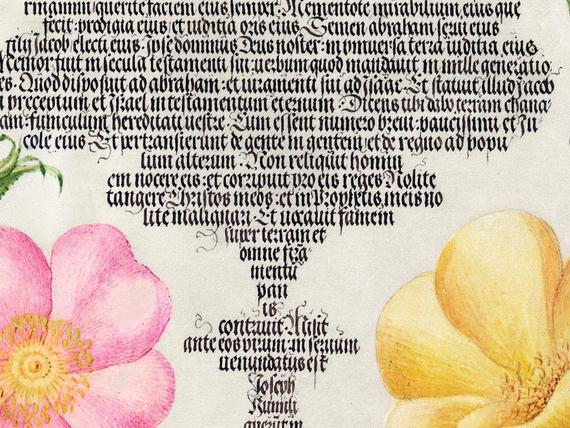 querite faciem eius semper. Mementote mirabilium eius que
fecit: prodigia eius et iuditia oris eius. Semen abraham serui eius
filij Jacob electi eius. Ipse dominus Deus noster: in vniuersa terra iuditia eius.
Memor fuit in secula testamenti sui: uerbum quod mandauit in mille generatio
es. Quod disposuit ad abraham: et iuramenti sui ad jsaac. Et statuit illud Jacob
preceptum et Israel in testamentum eternum. Dicens tibi dabo terram chana
am funiculum hereditati uestre. Cum essent numero breui: paucissimi et In
cole eius. Et pertransierunt de gente in gentem: et de regno ad popu
lum alterum. Non reliquit homini
em nocere eis: et corripuit pro eis reges. Nolite
tangere Christos meos: et in Prophetis meis no
lite malignari. Et uocauit famem
super terram et
omne firma
mentu
pan
is
contriuit. Misit
ante eos virum: in seruum
uenundatus est
Joseph
Humili
auerunt in